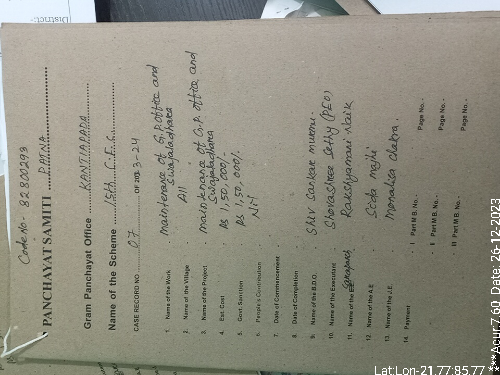 District:-
Code No - 82800293
PANCHAYAT SAMITI PATNA
Gram Panchayat Office KANTIAPADA
Name of the Scheme 15th C.F.C.
CASE RECORD NO. 07 OF 2023-24
1. Name of the Work : maintenance of G.P office and
swajaladhara
2. Name of the Village : All
3. Name of the Project : maintenance of G.P office and
swajaladhara
4. Est. Cost : Rs 1,50,000/-
5. Govt. Sanction : Rs 1,50,000/-
6. People's Contribution : Nil
7. Date of Commencement :
8. Date of Completion :
9. Name of the B.D.O. : Shiv Sankar murmu.
10. Name of the Executant : Shovashree Sethy (PEO)
11. Name of the Sarapanch : Rakshyamani Naik
12. Name of the A.E : Sida majhi
13. Name of the J.E. : Monalisa
14. Payment : I Part M.B. No.- Page No.-
II Part M.B. No.- Page No.-
III Part M.B. No.- Page No.-
Lat:Lon-21.77:85.77
***Acur:7.60 Date: 26-12-2023